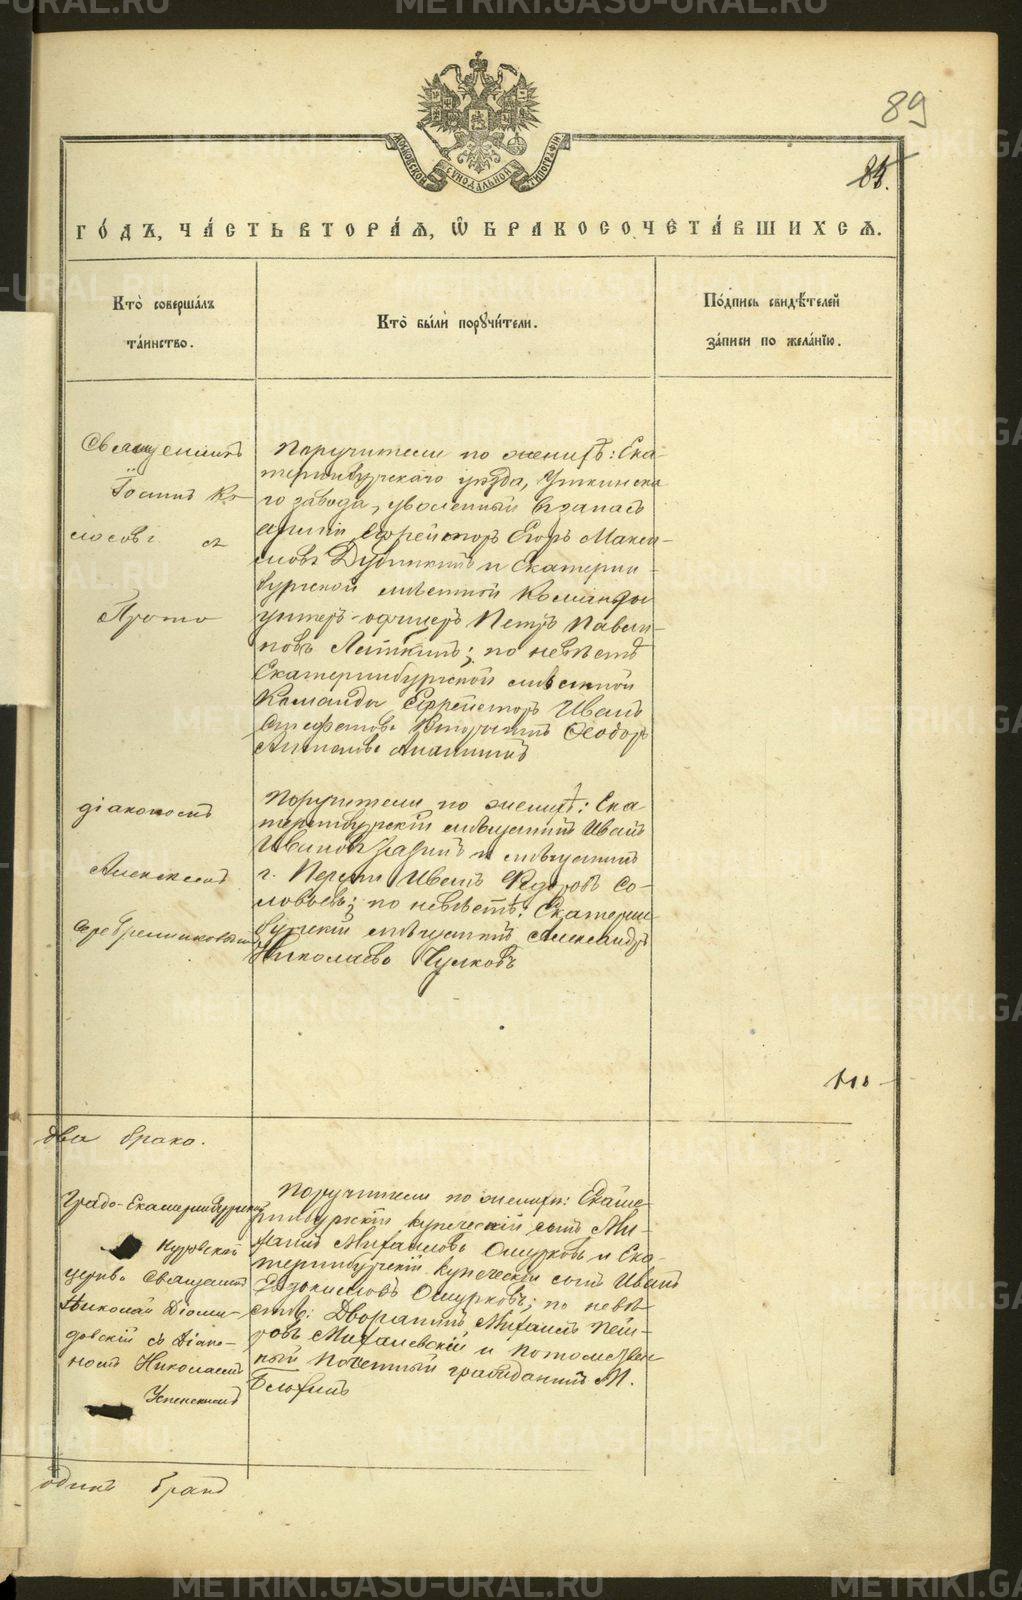 METRIKI.GASU-URAL.RU
89
85.
МОСКОВСКОЙ СѴНОДАЛЬНОЙ ТИПОГРАФІИ
ГО́ДЪ, ЧА́СТЬ ВТОРА́Ѧ, Ѡ҆ БРАКОСОЧЕТА́ВШИХСѦ.
Кто̀ соверша́лъ
та́инство.
Кто̀ бы́ли порꙋчи́тели.
По́дпись свидѣ́телей
за́писи по жела́нїю.
Священникъ
Іоаннъ Ко-
лосовъ с
Прото
діакономъ
Алексеемъ
Серебренниковымъ
Поручители по женихѣ: Ека-
теринбургскаго уѣзда, Уткинска-
го завода, уволенный въ запасъ
арміи Ефрейторъ Егоръ Макси-
мовъ Дубинкинъ и Екатерин-
бургской мѣстной Команды
унтеръ-офицеръ Петръ Павли-
новъ Лапкинъ; по невѣстѣ
Екатеринбургской мѣстной
Команды Ефрейторъ Иванъ
Стефановъ и Ѳеодоръ
Ананьинъ
Поручители по женихѣ: Ека
теринбургскій мѣщанинъ Иванъ
Ивановъ и мѣщанинъ
г. Перми Иванъ Ѳедоровъ Со-
ловьевъ; по невѣстѣ: Екатерин-
бургскій мѣщанинъ Александръ
Николаевъ Чулковъ
два брака.
Градо-Екатеринбургской
церкви Священникъ
Николай Діоми-
довскій съ Діако-
номъ Николаемъ
Успенскимъ
Поручители по женихѣ: Екате-
ринбургскій купеческій сынъ Ми-
хаилъ Михаиловъ Ошурковъ и Ека-
теринбургскій купеческій сынъ Иванъ
Евдокимовъ Ошурковъ; по невѣ-
стѣ: Дворянинъ Михаилъ Пет-
ровъ Михалевскій и потомствен
ный Почетный гражданинъ М.
Бѣлохинъ
одинъ бракъ